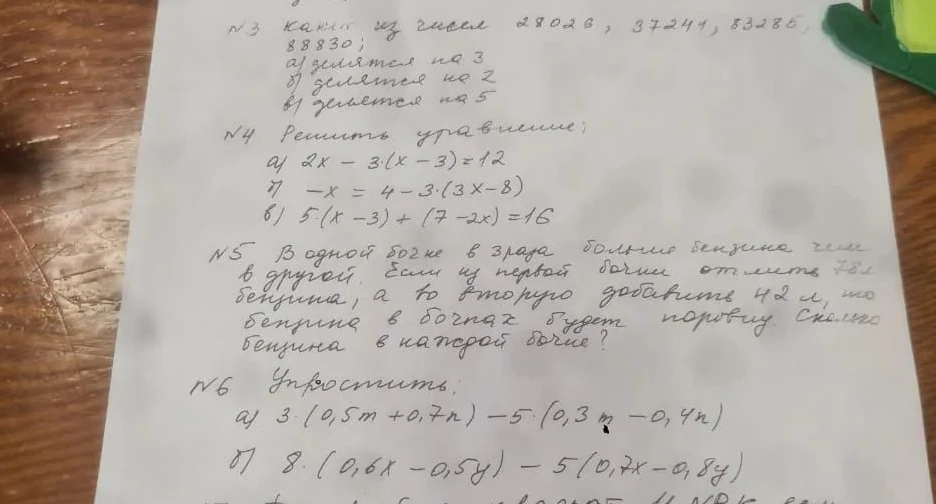 N3 Какие из чисел 28026, 37241, 83285,
88830;
а) делятся на 3
б) делятся на 2
в) делятся на 5
N4 Решить уравнение:
а) 2x - 3·(x - 3) = 12
б) -x = 4 - 3·(3x - 8)
в) 5·(x - 3) + (7 - 2x) = 16
N5 В одной бочке в 3 раза больше бензина чем
в другой. Если из первой бочки отлить 78 л
бензина, а во вторую добавить 42 л, то
бензина в бочках будет поровну. Сколько
бензина в каждой бочке?
N6 Упростить:
а) 3·(0,5m + 0,7n) - 5·(0,3m - 0,4n)
б) 8·(0,6x - 0,5y) - 5(0,7x - 0,8y)